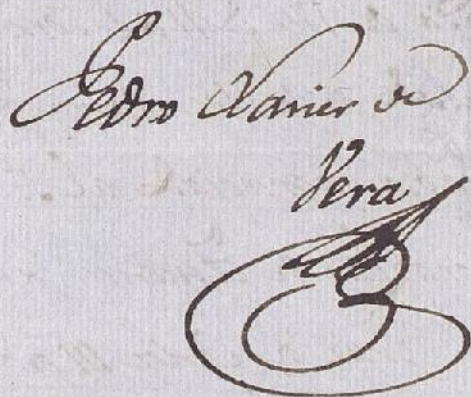 Pedro Xavier de
Vera